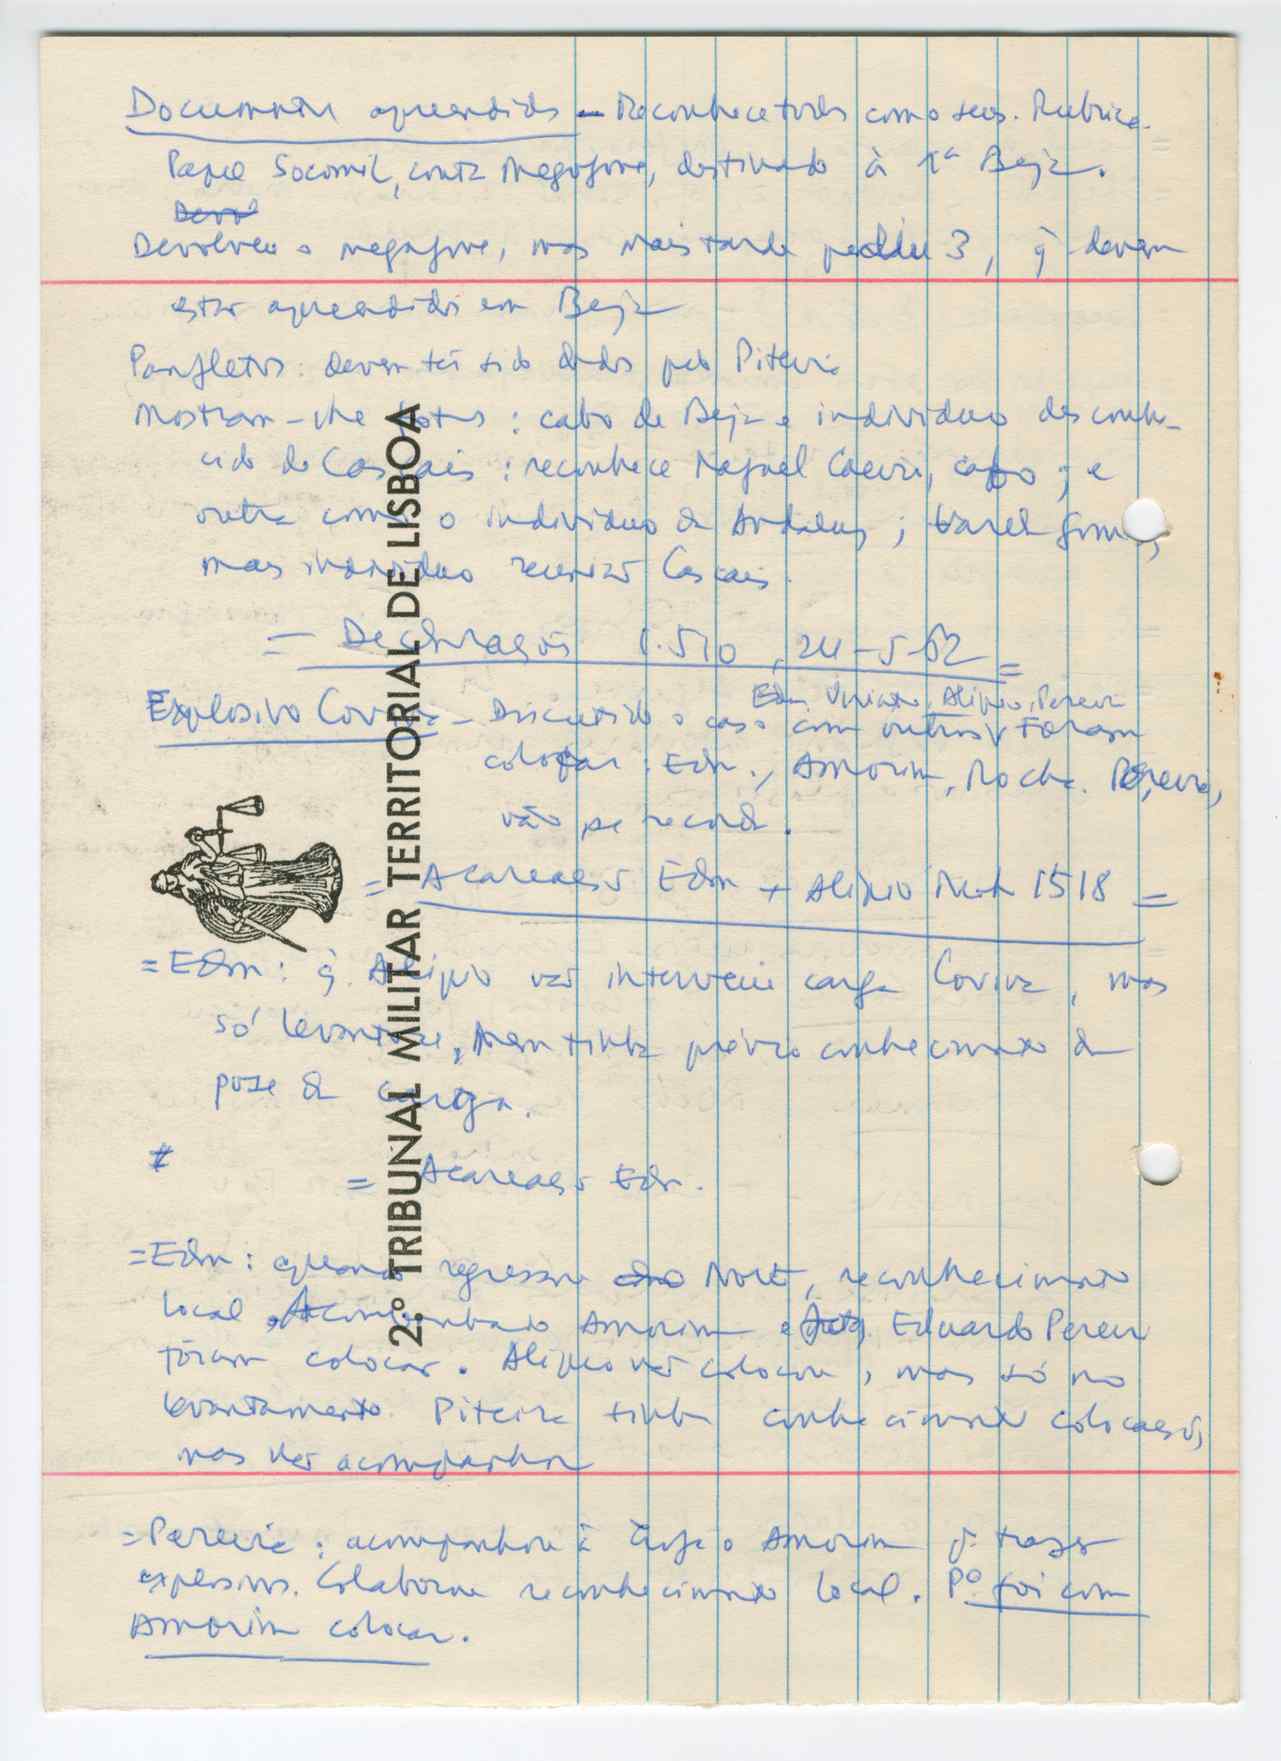 Documentos apreendidos — Reconhece todos como seus. Rubrica.
Papel Socomil, conta megafone, destinado à 1ª Beja.
Devol
Devolveu o megafone, mas mais tarde pediu 3, q̃ devem
estar apreendidos em Beja
Panfletos: devem ter sido dados pelo Piteira
Mostram-lhe fotos: cabo de Beja e individuo desconhe-
cido de Cascais: reconhece Raposo, cabo; e
outra como o individuo de Andaluz; Varela Gomes,
mas individuo reunião Cascais.
= Declarações 1.510, 24-5-62 =
Edm, Alipio, Pereira
Explosivo Covina — Discutido o caso com outros. Foram
colocar: Edm., Amorim, Rocha. Pereira,
não se recorda.
= Acareação Edm + Alipio 1518 =
= Edm: q̃ Alipio não interveio carga Covina, mas
só levantou, nem tinha prévio conhecimento da
pose da carga.
= Acareação Edm.
= Edm: quando regressou do Norte, reconhecimento
local. Acompanhado Amorim e Eduardo Pereira
foram colocar. Alipio não colocou, mas só no
levantamento. Piteira tinha conhecimento colocação,
mas não acompanhou
= Pereira: acompanhou à o Amorim p. trazer
explosivos. Colaborou reconhecimento local. Pº foi com
Amorim colocar.
2.º TRIBUNAL MILITAR TERRITORIAL DE LISBOA